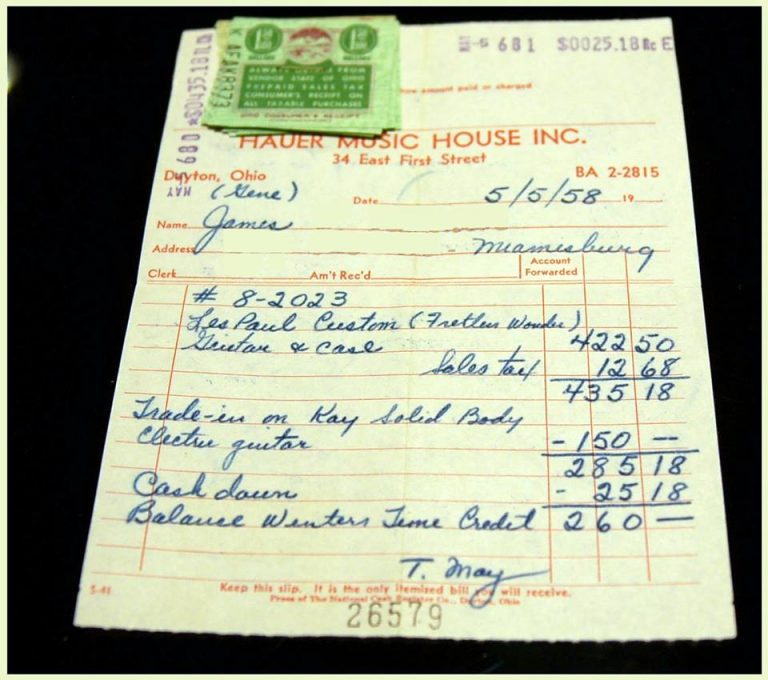 MAY -5 681 $0025.18 Rc E
MAY -5 680 *$0435.18 TL
K AFAK8373
ALWAYS DEMAND FROM
VENDOR STATE OF OHIO
PREPAID SALES TAX
CONSUMER'S RECEIPT ON
ALL TAXABLE PURCHASES
amount paid or charged
HAUER MUSIC HOUSE INC.
34 East First Street
Dayton, Ohio BA 2-2815
(Gene) Date 5/5/58 19
Name James
Address Miamesburg
Clerk Am't Rec'd Account Forwarded
# 8-2023
Les Paul Custom (Fretless Wonder)
Guitar & case 422 50
Sales tax 12 68
435 18
Trade-in on Kay Solid Body
Electric guitar -150 --
285 18
Cash down - 25 18
Balance Winters Time Credit 260 —
T. May
S-41 Keep this slip. It is the only itemized bill you will receive.
Press of The National Cash Register Co., Dayton, Ohio
26579